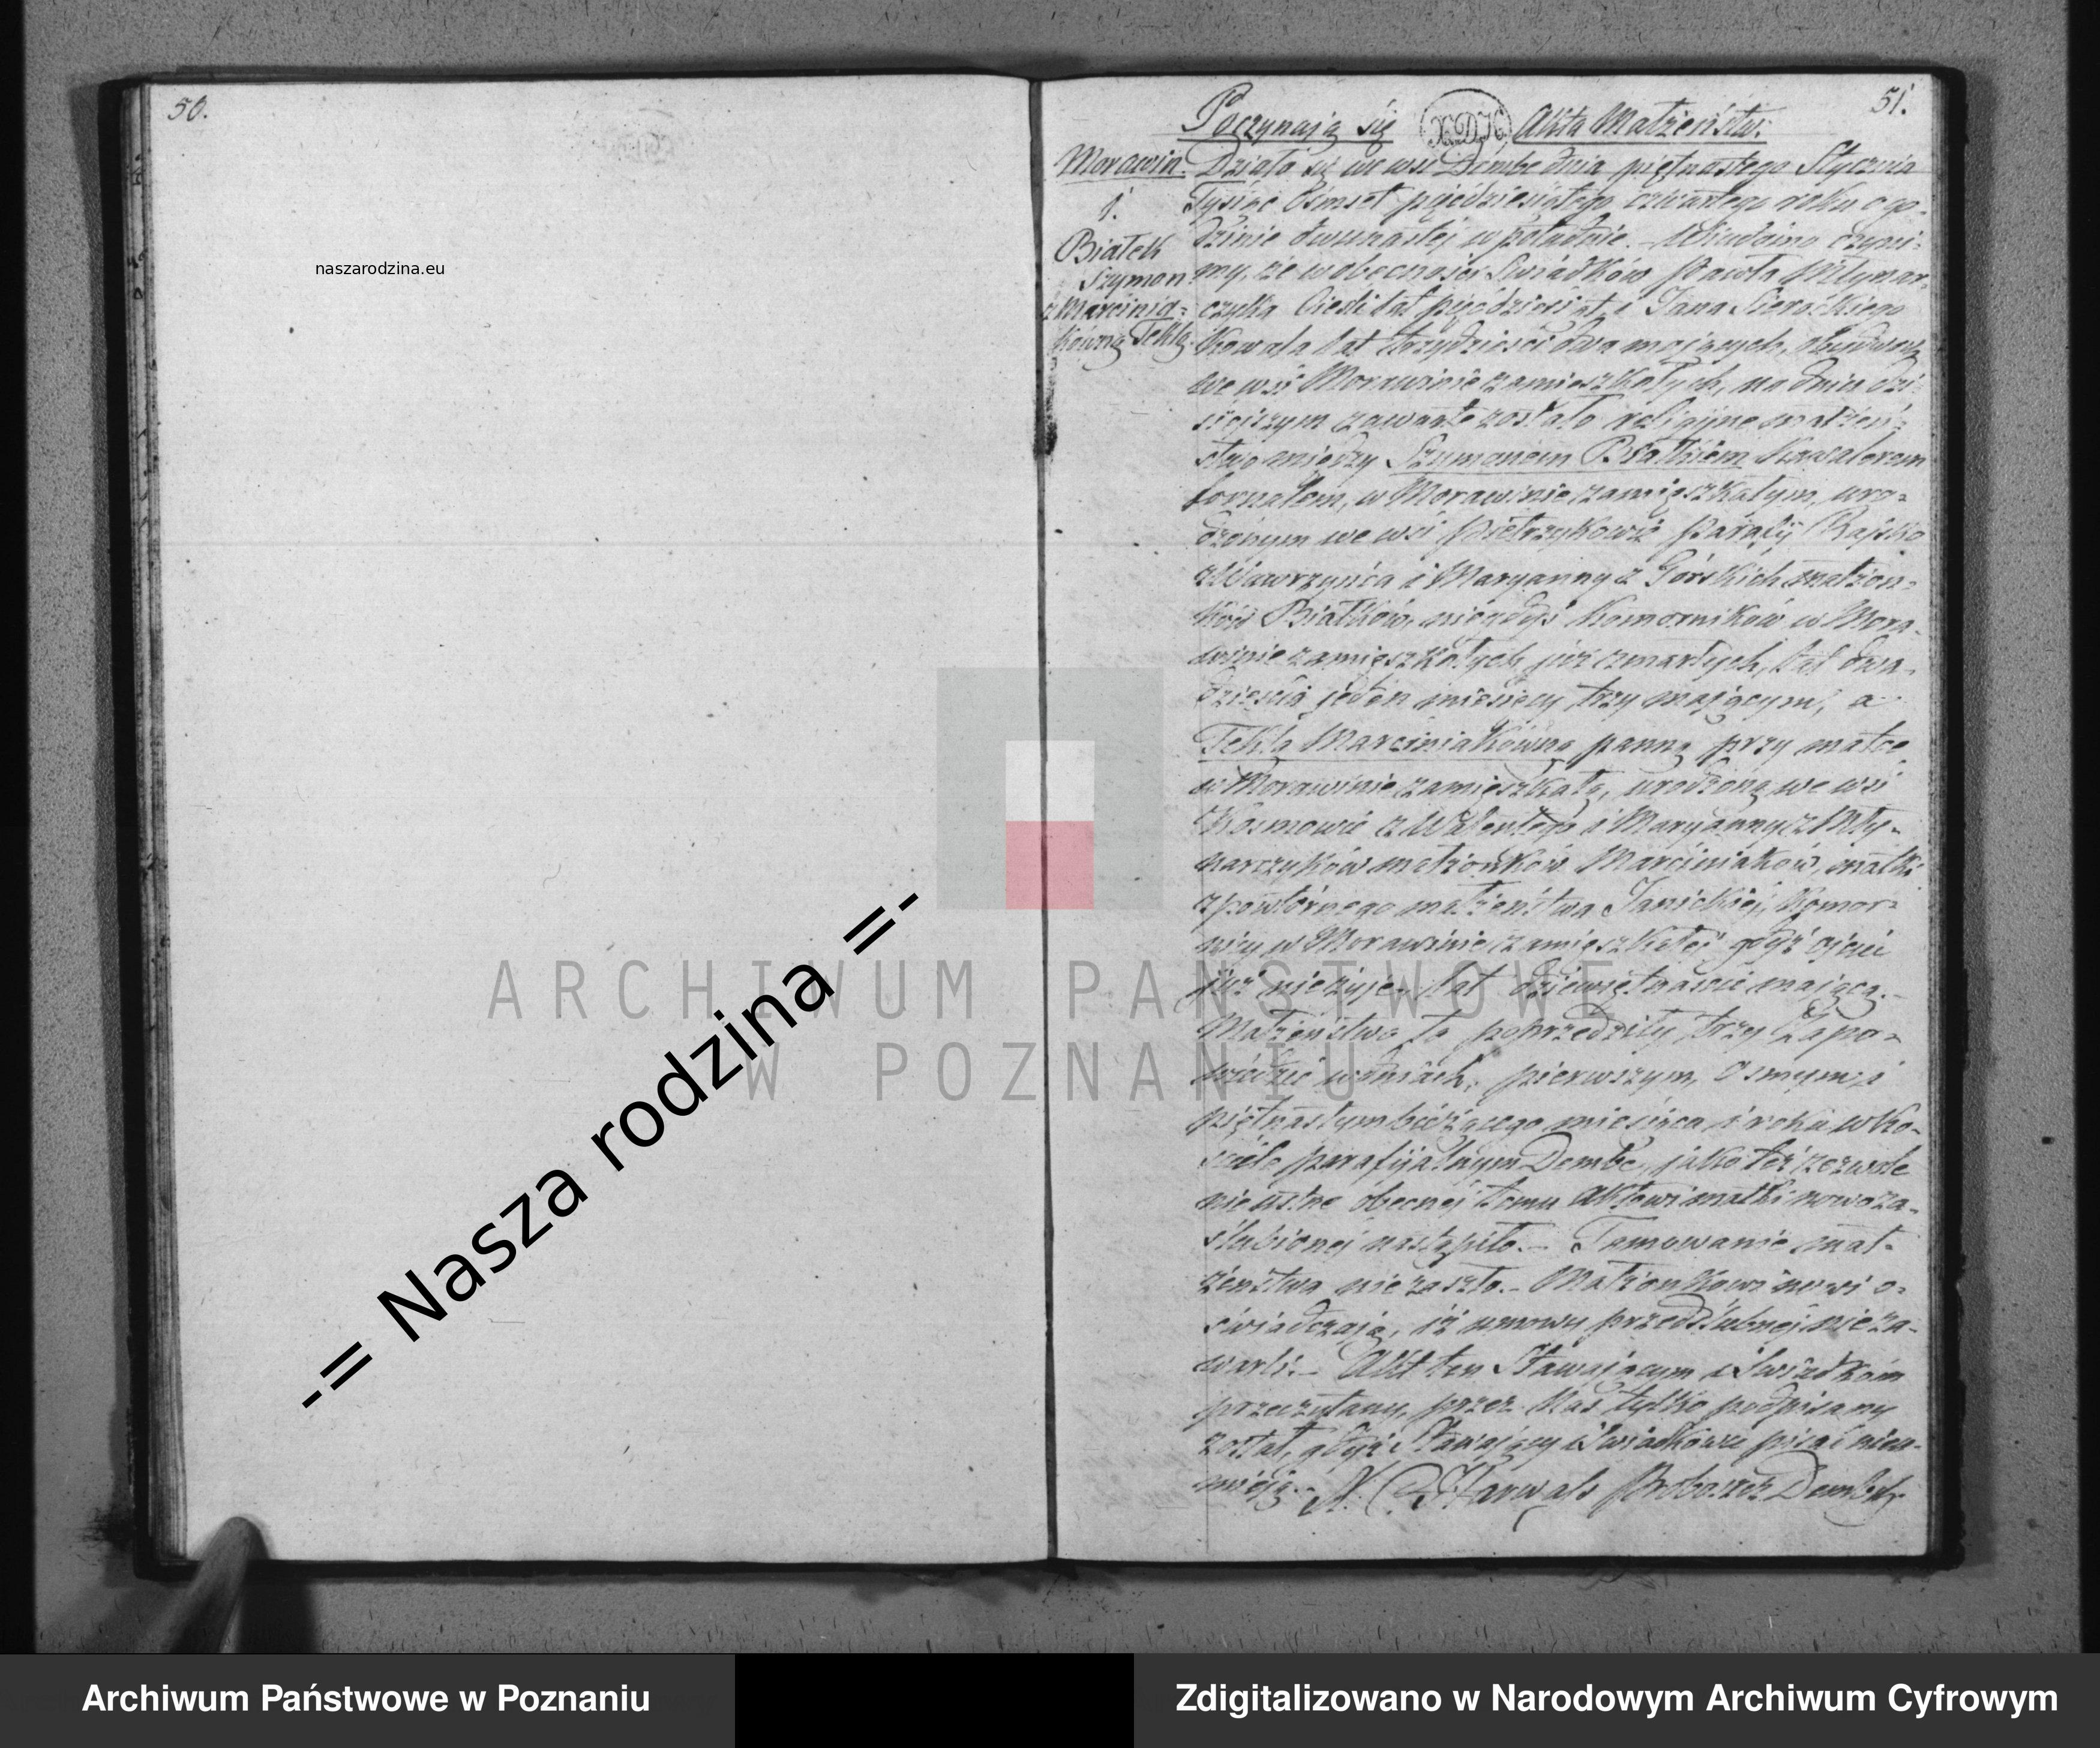 50.
naszarodzina.eu
-= Nasza rodzina =-
51.
Poczynają się Akta Małżeństw:
Morawin.
1.
Białek
Szymon
z Marcinia=
kówną Teklą.
Działo się we wsi Dembe dnia piętnastego Stycznia
Tysiąc Ośmset pięćdziesiątego czwartego roku o go-
dzinie dwunastej w południe. - Wiadomo czyni-
my, że w obecności Swiadków Pawła Młynar-
czyka lat pięćdziesiąt i Jana
Kowala lat trzydzieści dwa mających, obudwóch
we wsi Morawinie zamieszkałych, na dniu dzi-
siejszym zawarte zostało religijne małżeń-
stwo między Szymonem Białkiem Kawalerem
fornalem, w Morawinie zamieszkałym, uro-
dzonym we wsi Pietrzykowie Parafij Rajsko
z Wawrzyńca i Maryanny z Górskich małżon-
ków Białków, niegdyś Komorników w Mora-
winie zamieszkałych już zmarłych, lat dwa-
dzieścia jeden miesięcy trzy mającym, a
Teklą Marciniakówną panną przy matce
w Morawinie zamieszkałą, urodzoną we wsi
Kosmowie z Walentego i Maryanny z Mły-
narczyków małżonków Marciniaków, matki
z powtórnego małżeństwa Janickiej, Komor-
nicy w Morawinie zamieszkałej gdyż ojciec
już nieżyje, lat dziewiętnaście mającą. -
Małżeństwo to poprzedziły trzy Zapo-
wiedzie w dniach, pierwszym, Osmym i
piętnastym bieżącego miesiąca i roku w Ko-
ściele parafijalnym Dembe, jako też zezwole
nie ustne obecnej temu Aktowi matki nowoza-
ślubionej nastąpiło. - Tamowanie mał-
żeństwa nie zaszło. - Małżonkowie nowi o-
świadczają, iż umowy przedślubnej nie za-
warli. - Akt ten Stawającym i Swiadkom
przeczytany, przez Nas tylko podpisany
został, gdyż Stawający i Swiadkowie pisać nieu-
mieją. - Proboszcz Dembski
ARCHIWUM PAŃSTWOWE
W POZNANIU
Archiwum Państwowe w Poznaniu
Zdigitalizowano w Narodowym Archiwum Cyfrowym